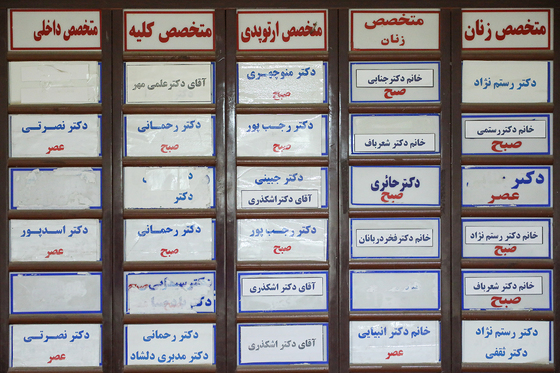 متخصص زنان
متخصص
زنان
متخصص ارتوپدی
متخصص کلیه
متخصص داخلی
دکتر رستم نژاد
خانم دکتر جنابی
صبح
دکتر منوچهری
صبح
آقای دکتر علمی مهر
خانم دکتر رستمی
صبح
خانم دکتر شعرباف
دکتر رجب پور
صبح
دکتر رحمانی
صبح
دکتر نصرتی
عصر
دکتر
عصر
دکتر حائری
صبح
دکتر جبینی
آقای دکتر اشکذری
دکتر
خانم دکتر رستم نژاد
صبح
خانم دکتر فخر دربانان
دکتر رجب پور
صبح
دکتر رحمانی
صبح
دکتر اسدپور
عصر
خانم دکتر شعرباف
صبح
آقای دکتر اشکذری
دکتر
دکتر رستم نژاد
دکتر ثقفی
خانم دکتر انبیایی
عصر
آقای دکتر اشکذری
دکتر رحمانی
دکتر مدبری دلشاد
دکتر نصرتی
عصر